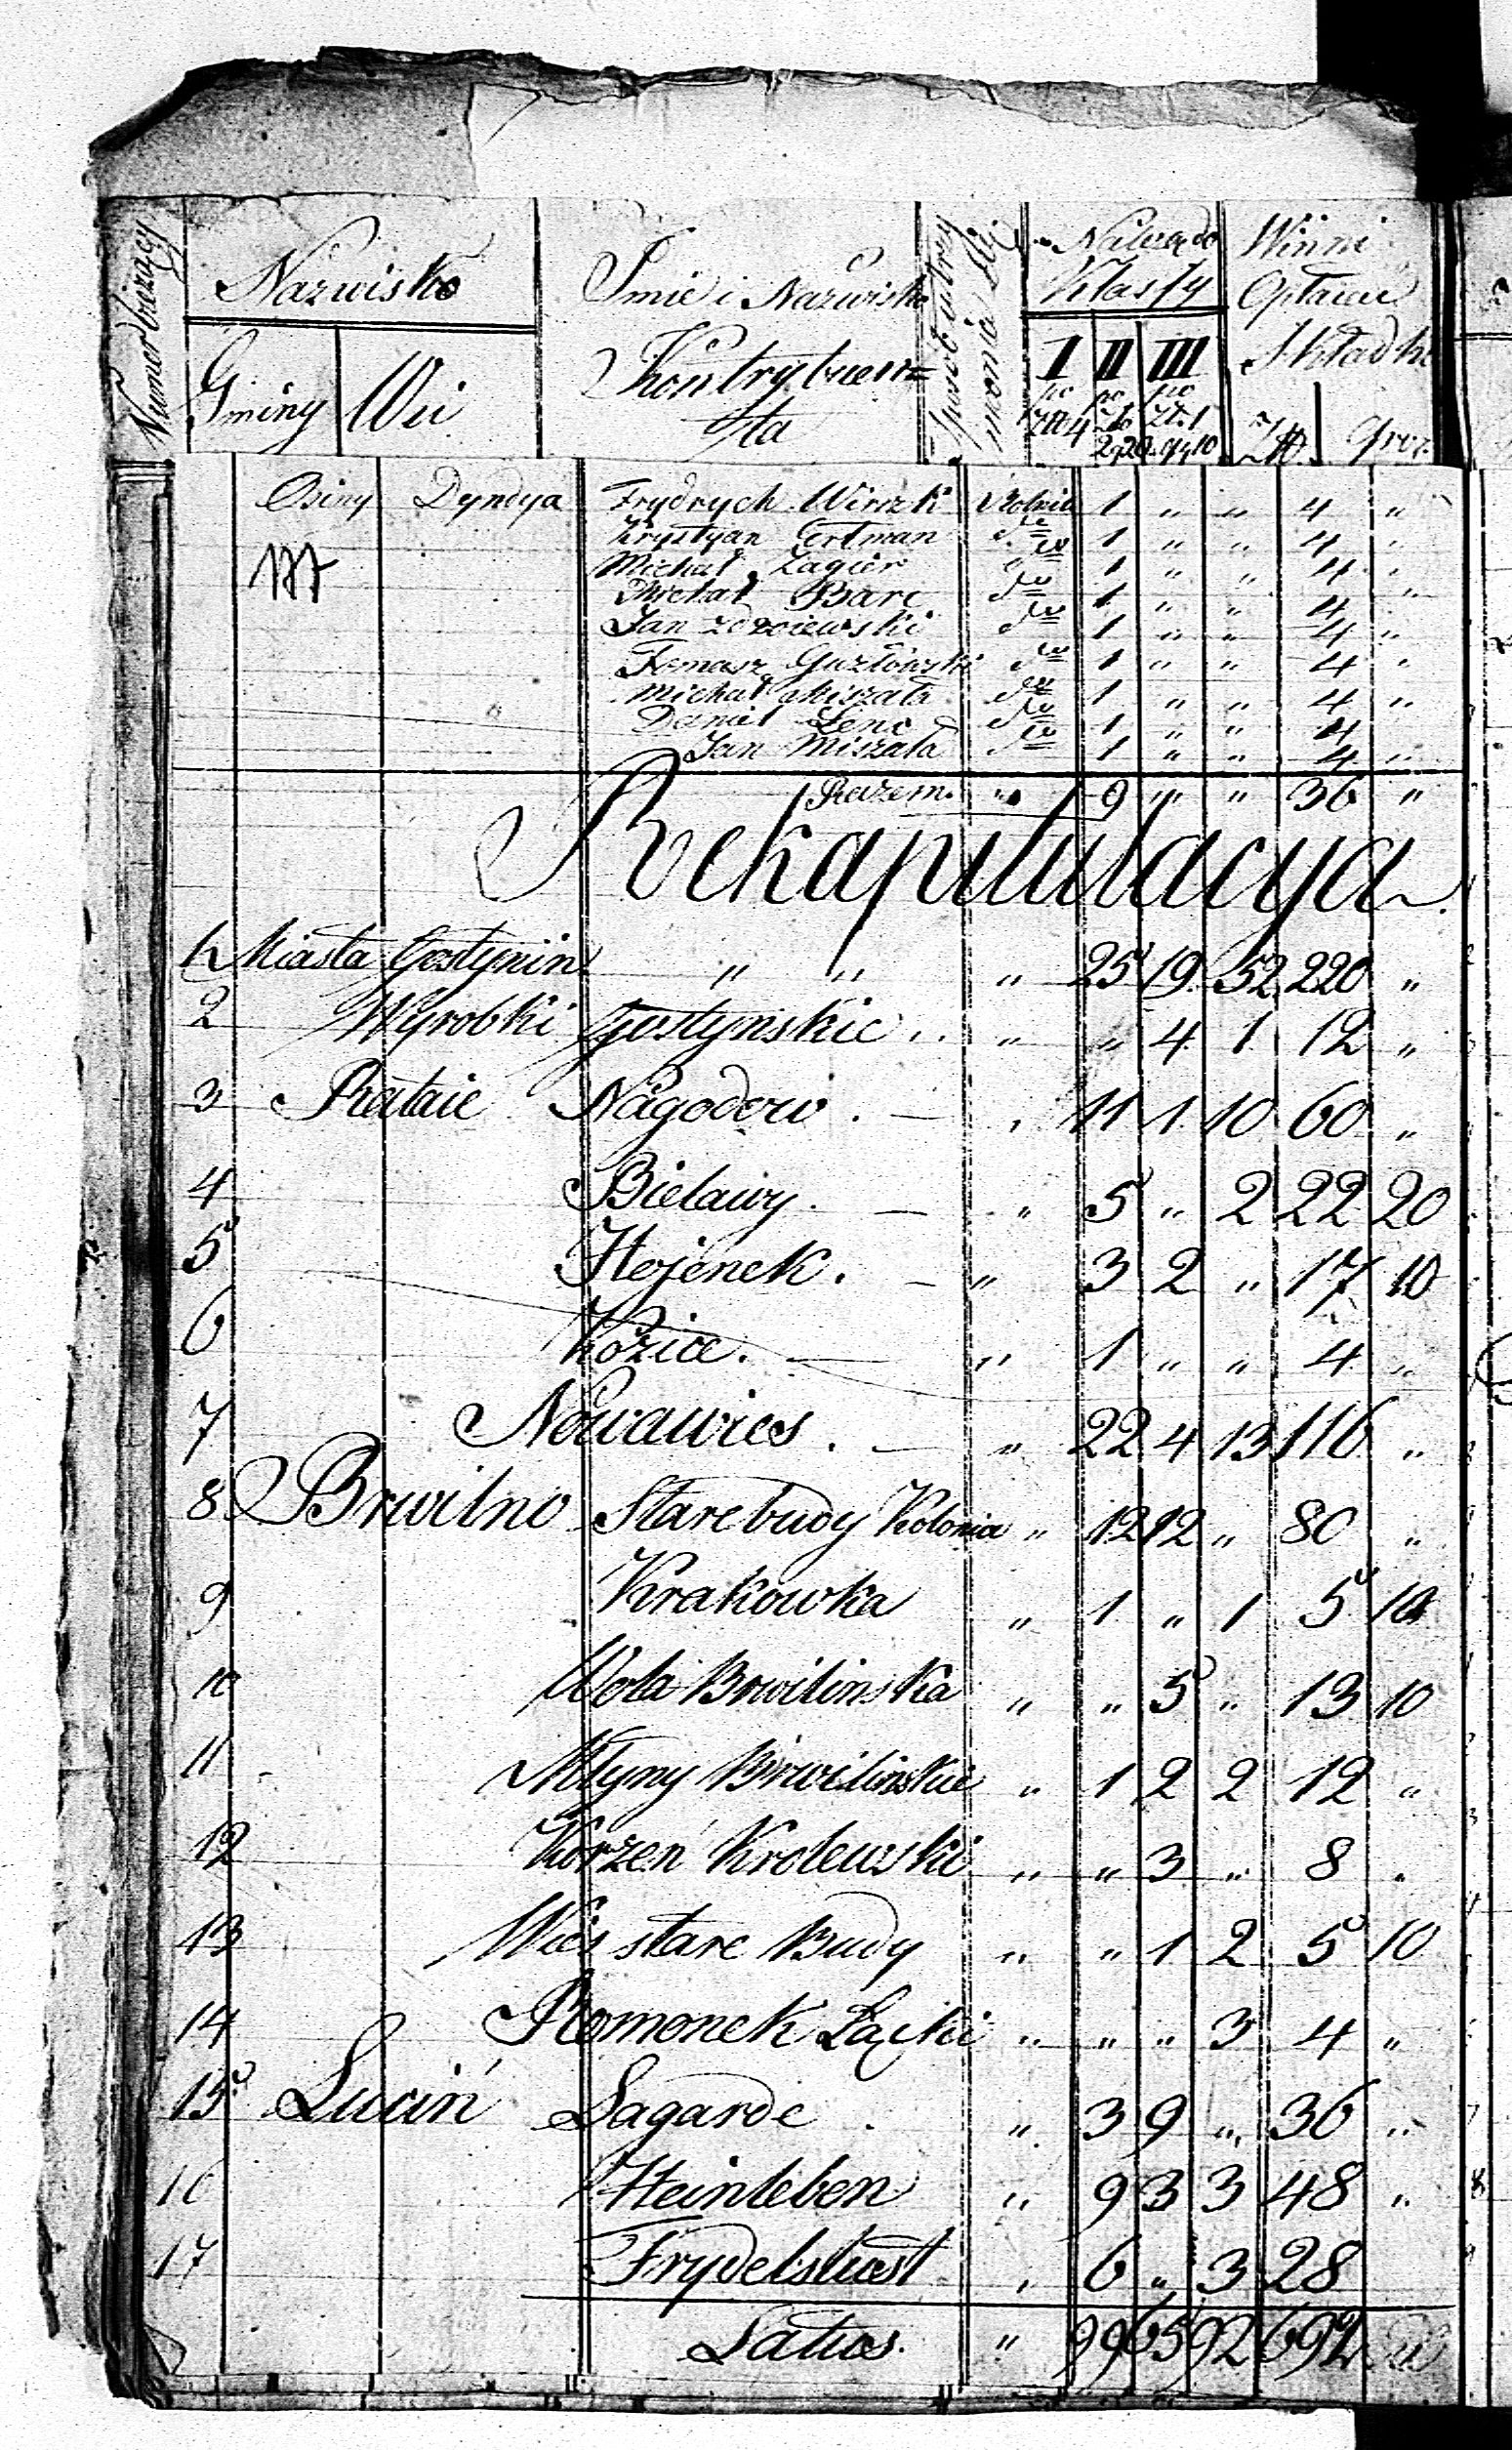 Numer bieżący
Nazwisko
Gminy Wsi
Imie i Nazwisko
Kontrybuen=
ta
Należą do
Klassy
I II III
po po po
Złł 4 Zło Zł: 1
2 g 20 gr 10
Winni
Opłacić
Składki
Zło groz.
Osiny Dyndya Frydrych Wirczk Rolnik 1 " " 4 "
Krystyan Gertman do 1 " " 4 "
Michał Zagier do 1 " " 4 "
Michał Barc do 1 " " 4 "
Jan do 1 " " 4 "
Tomasz Guzłowski do 1 " " 4 "
Michał Miszała do 1 " " 4 "
Daniel Lenc do 1 " " 4 "
Jan Miszała do 1 " " 4 "
Razem " 9 " " 36 "
Rekapitulacya.
1 Miasta Gostynin " " " 25 19 52 220 "
2 Wyrobki Gostynskie " " 4 1 12 "
3 Rataie Nagodow . — " 11 1 10 60 "
4 Bielawy . — " 5 " 2 22 20
5 Hojenek . — " 3 2 " 17 10
6 Kozice . — " 1 " " 4 "
7 Nowawies . — " 22 4 13 116 "
8 Brwilno Starebudy Kolonia " 12 12 " 80 "
9 Krakowka " 1 " 1 5 10
10 Wola Brwilinska " " 5 " 13 10
11 Młyny Brwilinskie " 1 2 2 12 "
12 Korzeń Krolewski " " 3 " 8 "
13 Wies stare Budy " " 1 2 5 10
14 Romonek Łącki " " " 3 4 "
15 Lucin Sagarde . " 3 9 " 36 "
16 Heinleben " 9 3 3 48 "
17 Frydelslust " 6 " 3 28
Latus. " 99 65 92 692